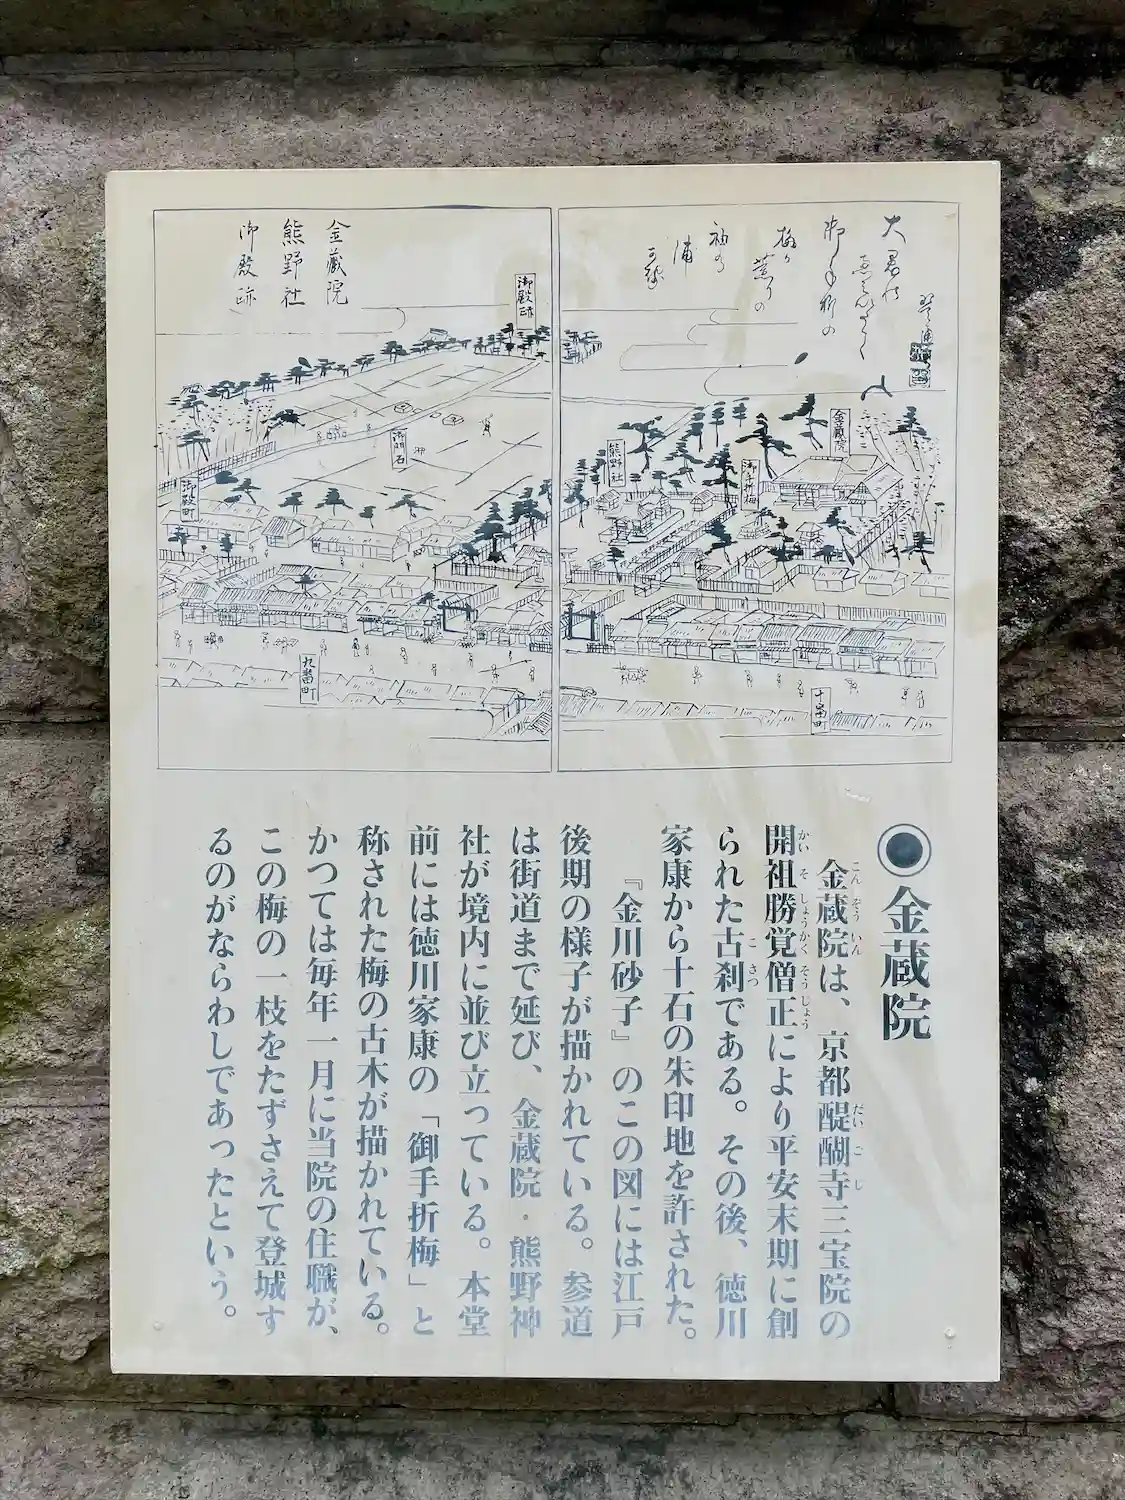 金蔵院
熊野社
御殿跡
御殿跡
金蔵院
熊野社
御手折梅
御門石
御殿町
九番町
十番町
◉金蔵院
金蔵院は、京都醍醐寺三宝院の
こんぞういん だいごじ
開祖勝覚僧正により平安末期に創
かいそしょうかくそうじょう
られた古刹である。その後、徳川
こさつ
家康から十石の朱印地を許された。
『金川砂子』のこの図には江戸
後期の様子が描かれている。参道
は街道まで延び、金蔵院・熊野神
社が境内に並び立っている。本堂
前には徳川家康の「御手折梅」と
称された梅の古木が描かれている。
かつては毎年一月に当院の住職が、
この梅の一枝をたずさえて登城す
るのがならわしであったという。